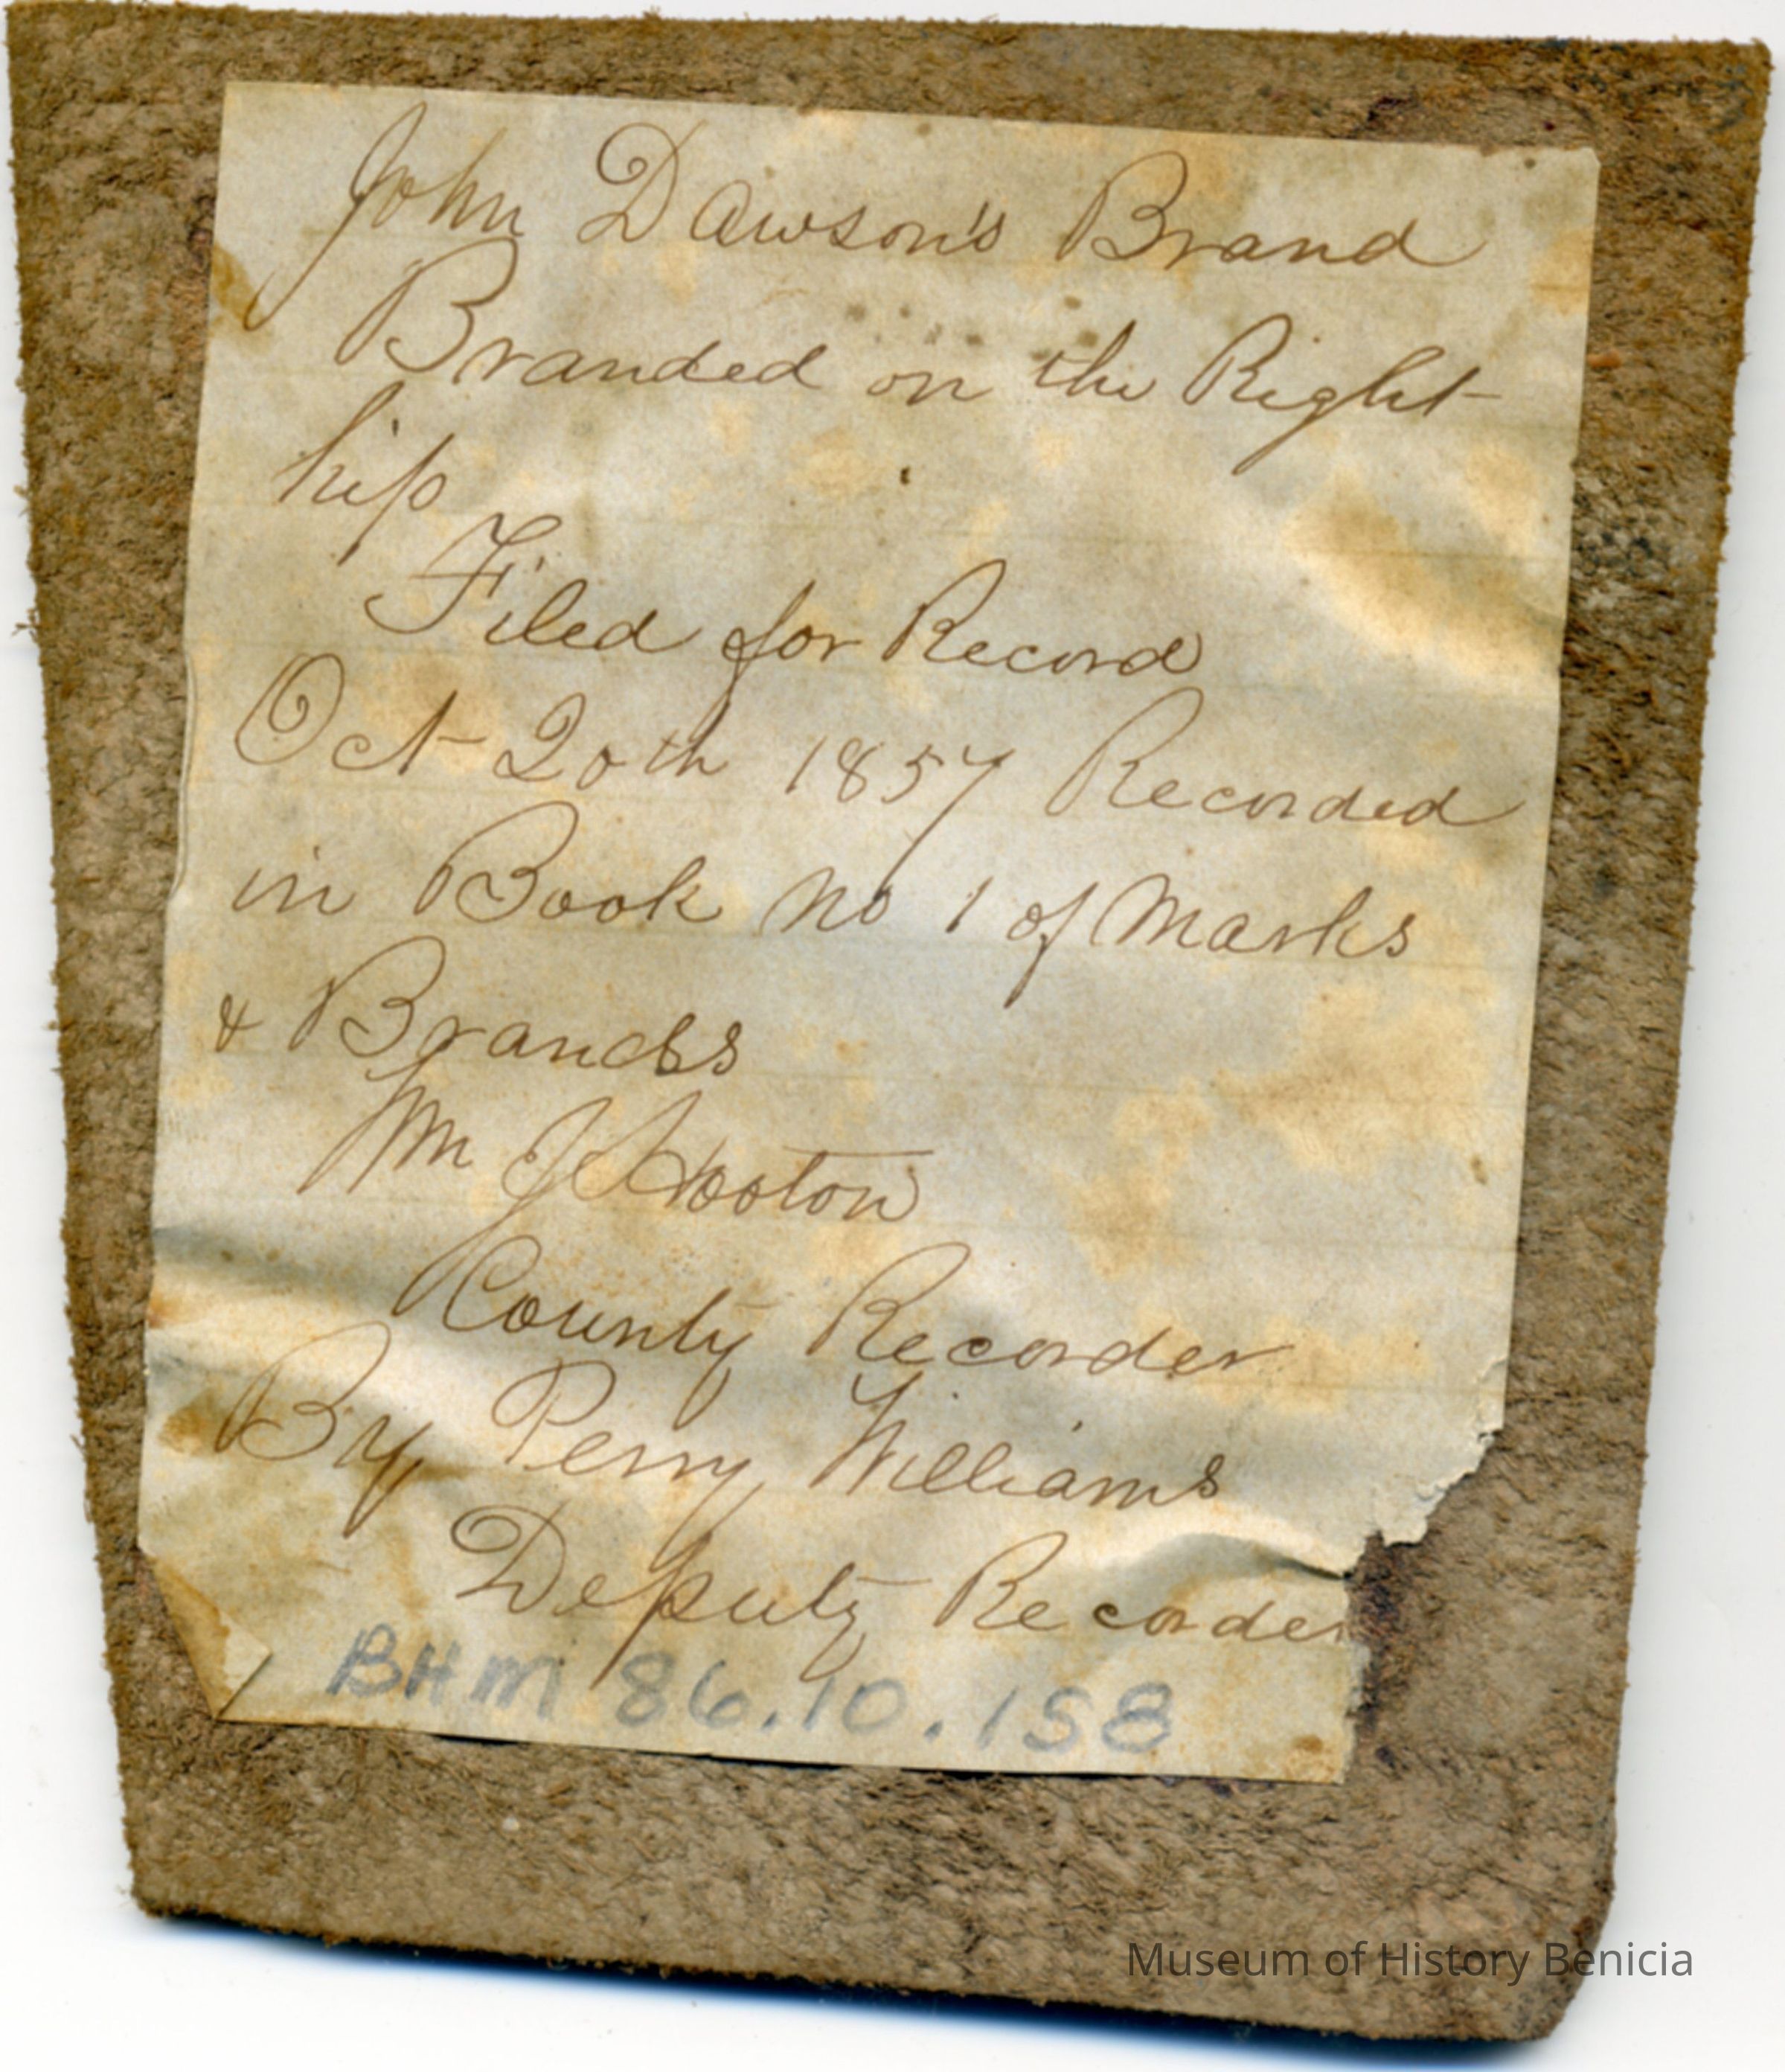 John Dawson's Brand
Branded on the Right
hip
Filed for Record
Oct 20th 1857 Recorded
in Book No 1 of Marks
& Brands
Wm J Hooton
County Recorder
By Perry Williams
Deputy Recorder
BHM 86.10.158
Museum of History Benicia